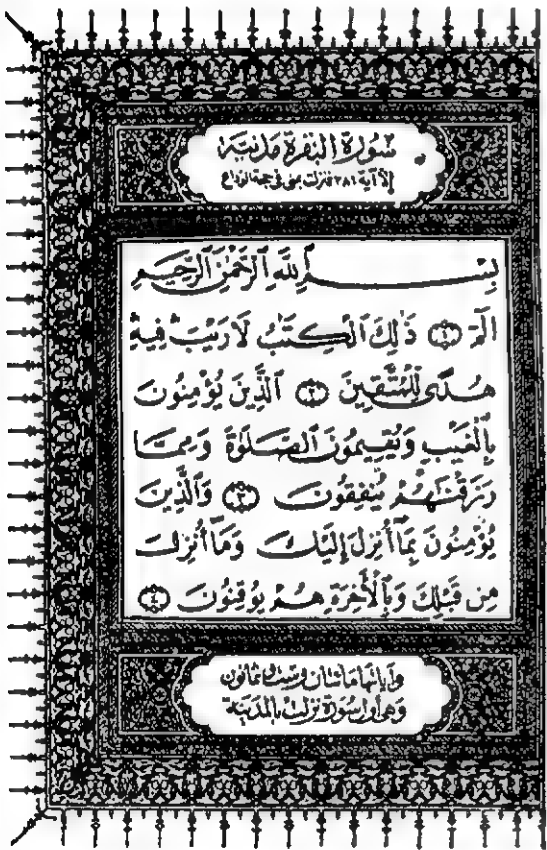 سُورَة البَقَرَة مَدَنِيَّة
إلا آية ٢٨١ فنزلت بمنى في حجة الوداع
بِسْمِ ٱللَّهِ ٱلرَّحْمَٰنِ ٱلرَّحِيمِ
الٓمٓ ۝١ ذَٰلِكَ ٱلْكِتَٰبُ لَا رَيْبَ ۛ فِيهِ ۛ
هُدًى لِّلْمُتَّقِينَ ۝٢ ٱلَّذِينَ يُؤْمِنُونَ
بِٱلْغَيْبِ وَيُقِيمُونَ ٱلصَّلَوٰةَ وَمِمَّا
رَزَقْنَٰهُمْ يُنفِقُونَ ۝٣ وَٱلَّذِينَ
يُؤْمِنُونَ بِمَآ أُنزِلَ إِلَيْكَ وَمَآ أُنزِلَ
مِن قَبْلِكَ وَبِٱلْأٓخِرَةِ هُمْ يُوقِنُونَ ۝٤
وآياتها مائتان وست وثمانون
وهي أول سورة نزلت بالمدينة